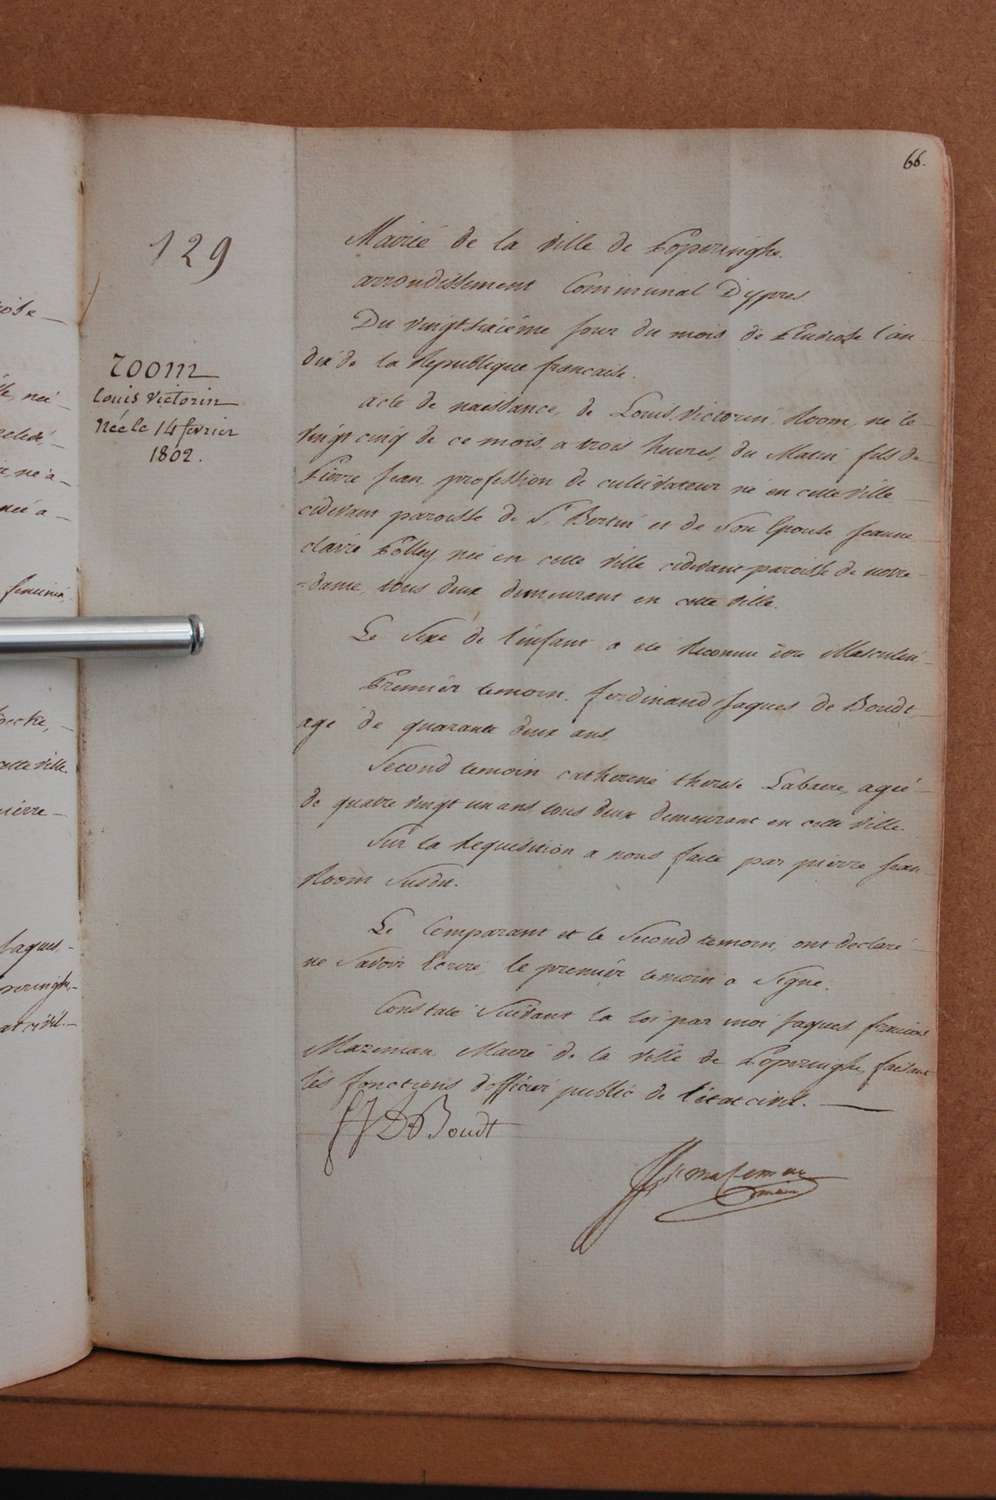 66.
129
Mairie de la Ville de Poperinghe
arrondissement Communal Dypres
Du vingt sixiéme jour du mois de Pluviose l'an
dix de la République francaise.
room
Louis Victorin
Née le 14 fevrier
1802.
acte de naissance, de Louis Victorin Room, né le
vingt cinq de ce mois, a trois heures, du Matin fils de
Pierre Jean profession de cultivateur né en cette ville
cidevant paroisse de St Bertin et de Son Epouse Jeanne
claire Folley née en cette ville cidevant paroisse de notre
-dame, tous deux demeurant en cette ville.
Le Sexe de l'enfant a été Reconnu être Masculin
Premier temoin. ferdinand Jaques de Boudt
agé de quarante deux ans
Second temoin catherine therese Labaere, agée
de quatre vingt un ans tous deux demeurant en cette ville.
Sur la Requisition a nous faite par pierre jean
Room Susdit.
Le Comparant et le Second temoin, ont declaré
ne Savoir Ecrire, le premier temoin a Signé.
Constaté Suivant la loi par moi Jaques francois
Mazeman Maire de la Ville de Poperinghe faisant
les fonctions d'officier public de l'état civil.
FJD Boudt
maire
cette ville.
pierre
Jaques